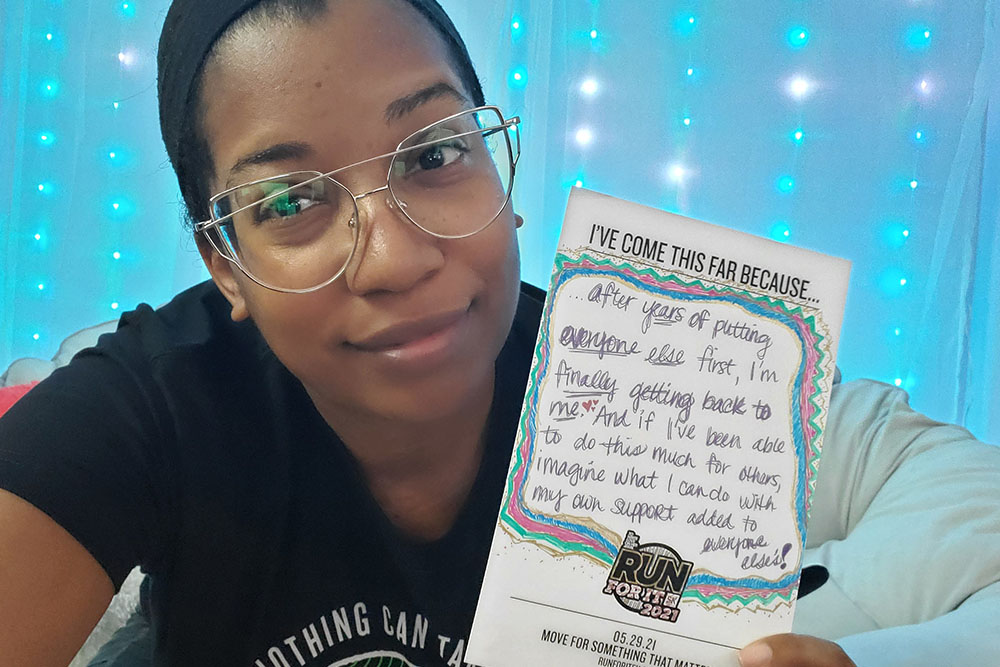 I'VE COME THIS FAR BECAUSE...
...after years of putting
everyone else first, I'm
finally getting back to
me. And if I've been able
to do this much for others,
imagine what I can do with
my own support added to
everyone
else's!
RUN
FOR IT 5K
2021
05.29.21
MOVE FOR SOMETHING THAT MATT
NOTHING CAN TA